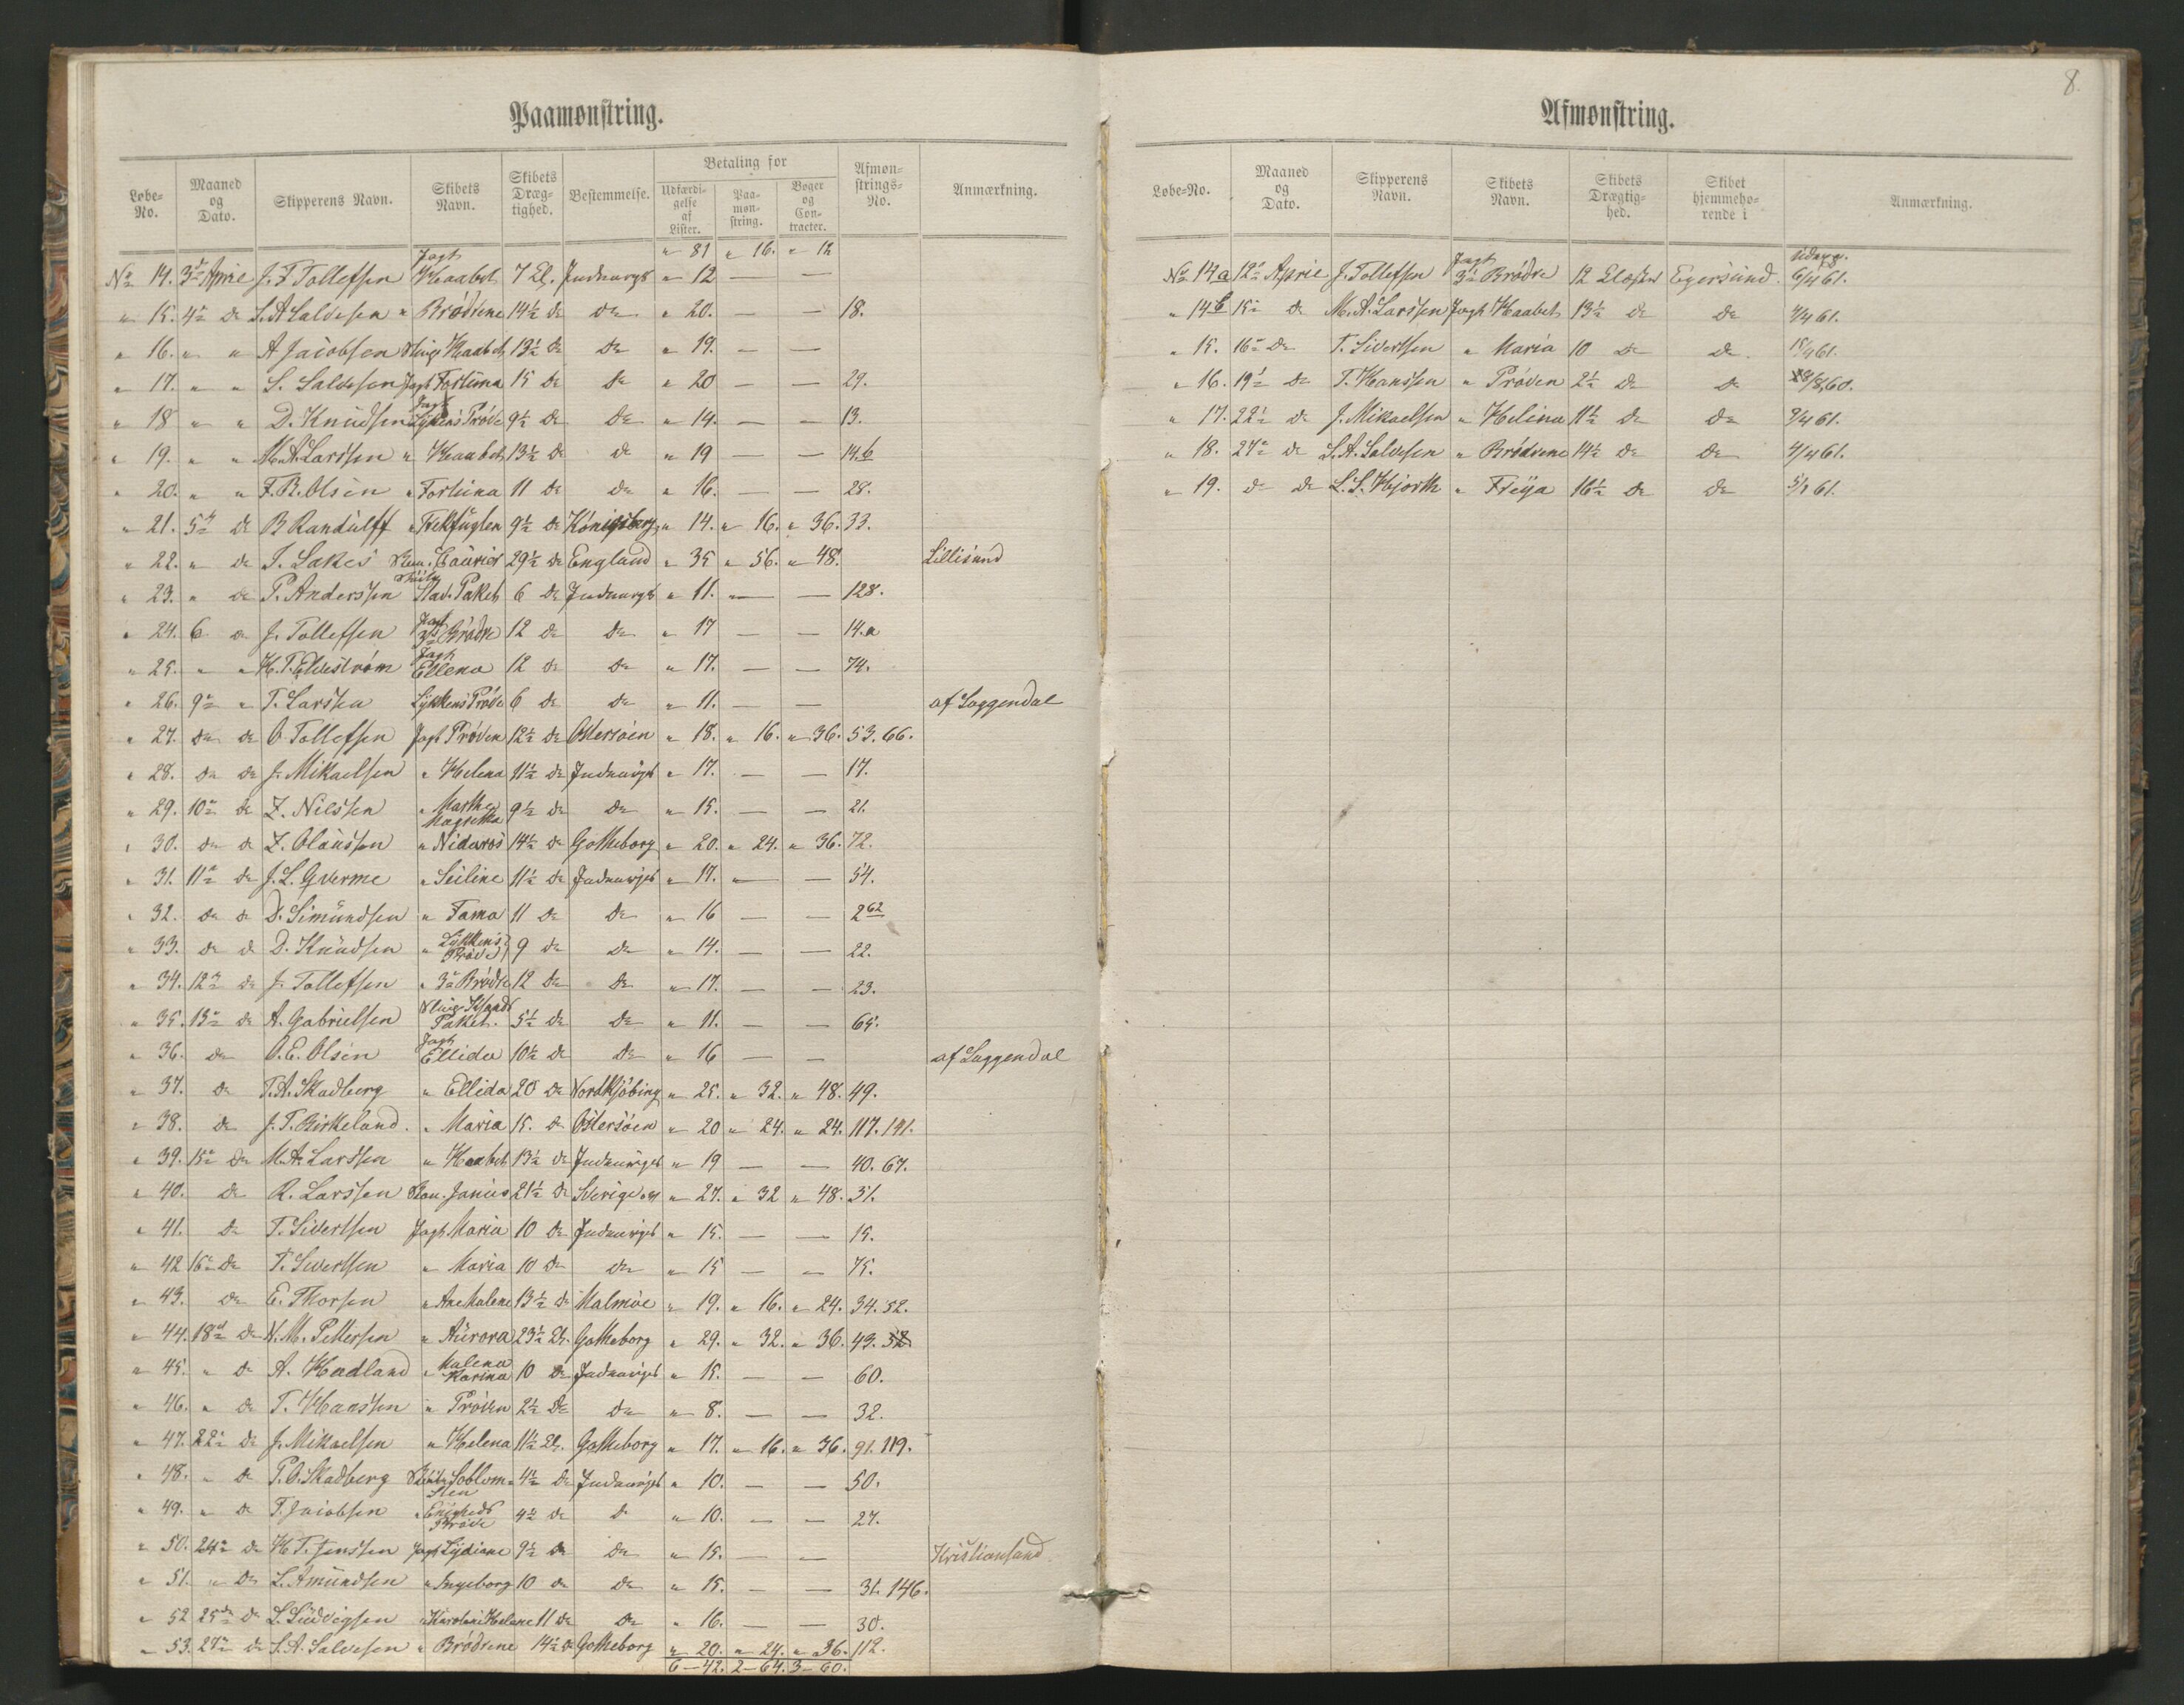 Paamønstring.
Løbe-No. Maaned og Dato. Skipperens Navn. Skibets Navn. Skibets Dræg-tighed. Bestemmelse. Betaling for Udfærdi-gelse af Lister. Paa-møn-string. Bøger og Con-tracter. Afmøn-strings-No. Anmærkning.
" 81 " 16. " 12
No 14. 3die April J. T. Tollefsen Jagt Haabet 7 Cl. Indenrigs " 12 — —
" 15. 4de do S. A. Salvesen " Brødrene 14½ do do " 20. — — 18.
" 16. " " A Jacobsen Haabet 13½ do do " 19. — —
" 17. " " S. Salvesen Jagt Fortuna 15 do do " 20 — — 29.
" 18 " " D. Knudsen Jagt Lykkens Prøve 9½ do do " 14. — — 13.
" 19. " " M. A. Larssen " Haabet 13½ do do " 19 — — 14.b
" 20. " " F. B. Olsen " Fortuna 11 do do " 16. — — 28.
" 21. 5te do B Randulff " Trekfuglen 9½ do Kønigsberg " 14. " 16. " 36. 33.
" 22. " do T. Lakes Courier 29½ do England " 35 " 56. " 48. Lillisand
" 23. " do P. Anderssen Stav. Paket 6 do Indenrigs " 11. — — 128.
" 24. 6 do J. Tollefsen Jagt 3de Brødre 12 do do " 17 — — 14.a
" 25. " " H. T. Elvestrøm Jagt Ellena 12 do do " 17. — — 74.
" 26. 9de " T. Larsen Lykkens Prøve 6 do do " 11. — — af Loggendal
" 27. do do O Tollefsen Jagt Prøven 12½ do Østersøen " 18. " 16. " 36. 53. 66.
" 28. do do J. Mikaelsen " Helena 11½ do Indenrigs " 17. — — 17.
" 29. 10de do Z. Nilssen " Martha Magretha 9½ do do " 15. — — 21.
" 30. do do Z. Olaussen " Nidaros 14½ do Gotheborg " 20. " 24. " 36. 72.
" 31. 11te do J. L. Gverme " Seiline 11½ do Indenrigs " 17. — — 54.
" 32. do do D. Simundsen " Fama 11 do do " 16 — — 262
" 33. do do D. Knudsen " Lykkens Prøve 9 do do " 14. — — 22.
" 34. 12te do J. Tollefsen " 3de Brødre 12 do do " 17. — — 23.
" 35. 13de do A. Gabrielsen Paket. 5½ do do " 11. — — 65.
" 36. do O. E. Olsen Jagt Ellida 10½ do do " 16 — — af Loggendal
" 37. do T. A. Skadberg " Ellida 20 do Nordkjöbing " 25. " 32. " 48. 49.
" 38. do J. T. Birkeland. " Maria 15. do Østersøen " 20 " 24. " 24. 117. 141.
" 39. 15de do M. A. Larssen " Haabet 13½ do Indenrigs " 19 — — 40. 67.
" 40. do R. Larssen Janus 21½ do Sverige " 27. " 32 " 48. 51.
" 41. do T. Sivertsen Jagt Maria 10 do Indenrigs " 15. — — 15.
" 42 16de do T. Sivertsen " Maria 10 do do " 15 — — 75.
" 43. do E. Thorsen " Ane Malene 13½ do Malmöe " 19. " 16. " 24. 34. 52.
" 44. 18de do N. M. Pettersen " Aurora 23½ Cl. Gotheborg " 29. " 32. " 36. 43. 52
" 45. " do A. Hadland " Malena Karina 10 do Indenrigs " 15. — — 60.
" 46. " do T. Hanssen " Prøven 2½ do do " 8. — — 32.
" 47. 22de do J. Mikaelsen " Helena 11½ Cl. Gotheborg " 17. " 16. " 36. 91. 119.
" 48. " do P. O. Skadberg Soblomsten 4½ do Indenrigs " 10. — — 50.
" 49. " do T. Jacobsen " Enigheds Prøve 4½ do do " 10. — — 27.
" 50. 24de do H. T. Jenssen Jagt Lydiane 9½ do do " 15. — — Kristiansand.
" 51. " do L. Amundsen " Ingeborg 10 do do " 15. — — 31. 146.
" 52 25de do L. Ludvigsen " Karoline Helene 11 do do " 16. — — 30.
" 53. 27de do S. A. Salvesen " Brødrene 14½ do Gotheborg " 20. " 24. " 36. 112.
6–42. 2–64. 3–60.
8.
Afmønstring.
Løbe-No. Maaned og Dato. Skipperens Navn. Skibets Navn. Skibets Drægtig-hed. Skibet hjemmehø-rende i Anmærkning.
No 14a 12te April J. Tollefsen Jagt 3de Brødre 12 Clæster Egersund. 6/4 61.
" 14b 15de do M. A. Larssen Jagt Haabet 13½ do do 4/4 61.
" 15. 16de do T. Sivertsen " Maria 10 do do 15/4 61.
" 16. 19de do T. Hanssen " Prøven 2½ do do /8 60.
" 17. 22de do J. Mikaelsen " Helena 11½ do do 9/4 61.
" 18. 27de do S. A. Salvesen " Brødrene 14½ do do 4/4 61.
" 19. do do L. S. Hjorth " Freya 16½ do do 5/1 61.